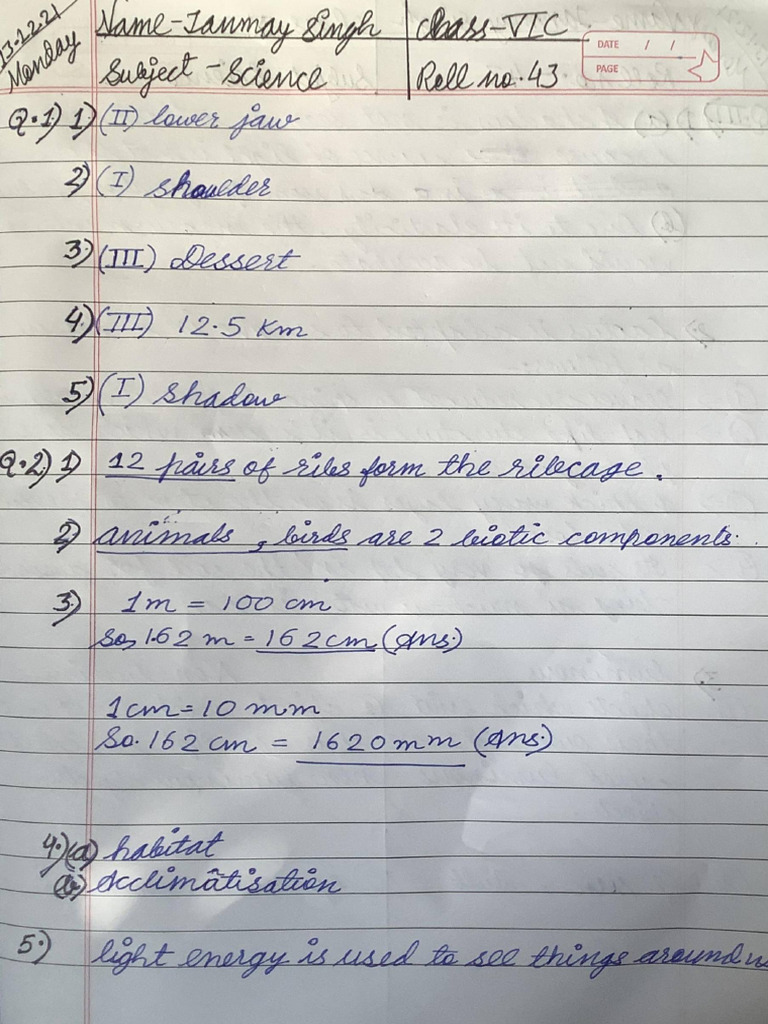 13.12.21
Monday
Name-Tanmay Singh
Class-VIC
Subject-Science
Roll no.43
DATE / /
PAGE
Q.1) 1) (II) lower jaw
2) (I) shoulder
3) (III) Dessert
4) (III) 12.5 Km
5) (I) shadow
Q.2) 1) 12 pairs of ribs form the ribcage.
2) animals, birds are 2 biotic components.
3) 1m = 100 cm
So, 1.62 m = 162cm (Ans.)
1cm = 10 mm
So. 162 cm = 1620mm (Ans.)
4.) (a) habitat
(b) Acclimatisation
5.) light energy is used to see things around